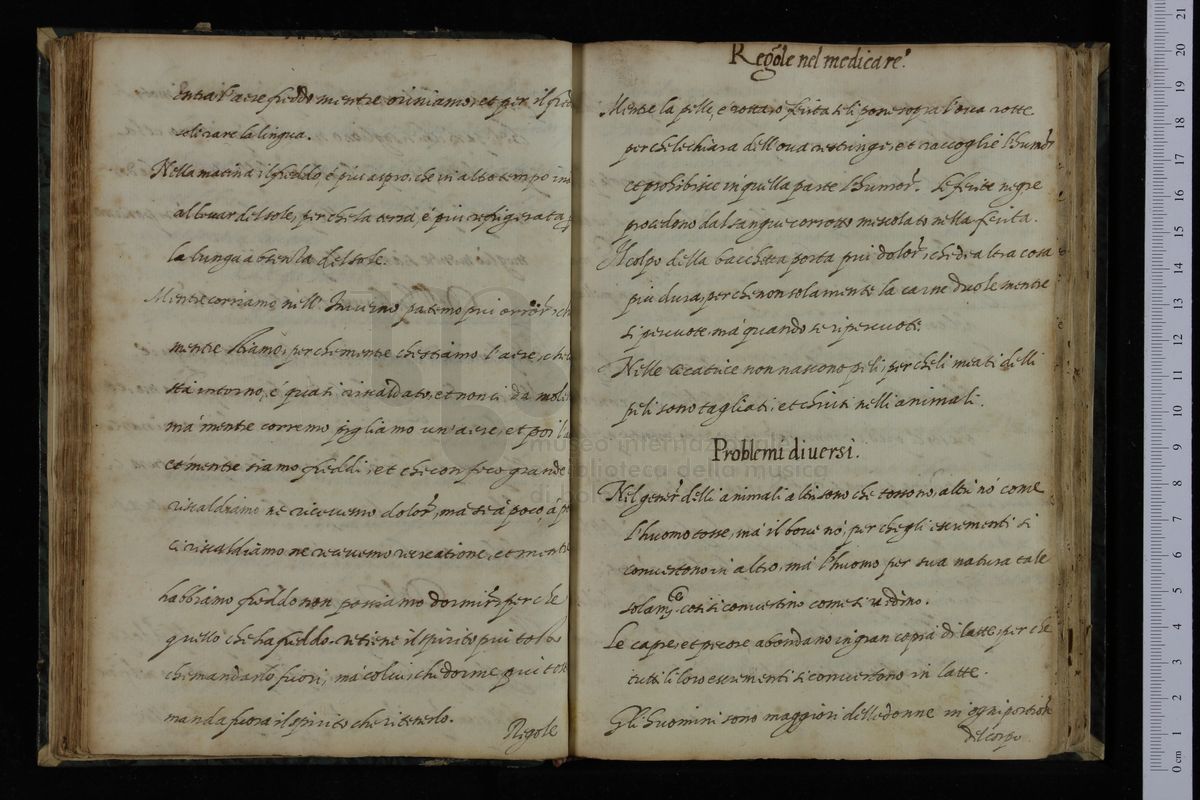 entra l'aere freddo mentre oriniamo, et per il fred
soliciare la lingua.
Nella matina il freddo, è piu aspro, che in altro tempo
al levar del sole, perche la terra, è piu refrigerata p
la lunga absentia del sole.
Mentre corriamo nell' Inverno patemo piu orror, ch
mentre stiamo, perche mentre che stiamo l'aere, che ci
stà intorno, è quasi riscaldato, et non ci da moles
mà mentre corremo pigliamo un'aere, et poi l'a
et mentre siamo freddi, et che con foco grande
riscaldiamo ne ricevemo dolor, ma se à poco, à po
ci riscaldiamo ne recevemo recreatione, et mentre
habbiamo freddo non possiamo dormir, perche
quello che ha freddo retiene il spirito piu tosto
che mandarlo fuori, mà colui, che dorme piu tosto
manda fuora il spirito che ritenerlo.
Regole
Regole nel medicare.
Mentre la pelle, è rotta, o ferita se li pone sopra l'ova rotte
perche le chiara dell'ova restringe, et raccoglie l'humor
et prohibisce in quella parte l'humor. Le ferite negre
procedono dal sangue corrotto mescolato nella ferita.
Il colpo della bacchetta porta piu dolor, che de altra cosa
piu dura, perche non solamente la carne duole mentre
si percuote, mà quando se ripercuote.
Nelle cicatrice non nascono peli, perche li meati delli
peli sono tagliati, et chiusi nelli animali.
Problemi diversi.
Nel gener delli animali altri sono che tossono, altri nò come
l'huomo tosse, mà il bove nò, perche gli escrementi si
convertono in altro, mà l'huomo per sua natura tale
solam.te così si convertino come si vedono.
Le capre, et pecore abondano in gran copia di latte, perche
tutti li loro escrementi si convertono in latte.
Gli huomini sono maggiori delle donne in ogni portione
del corpo
museo internazionale
biblioteca della musica
di bologna
0 cm 1 2 3 4 5 6 7 8 9 10 11 12 13 14 15 16 17 18 19 20 21